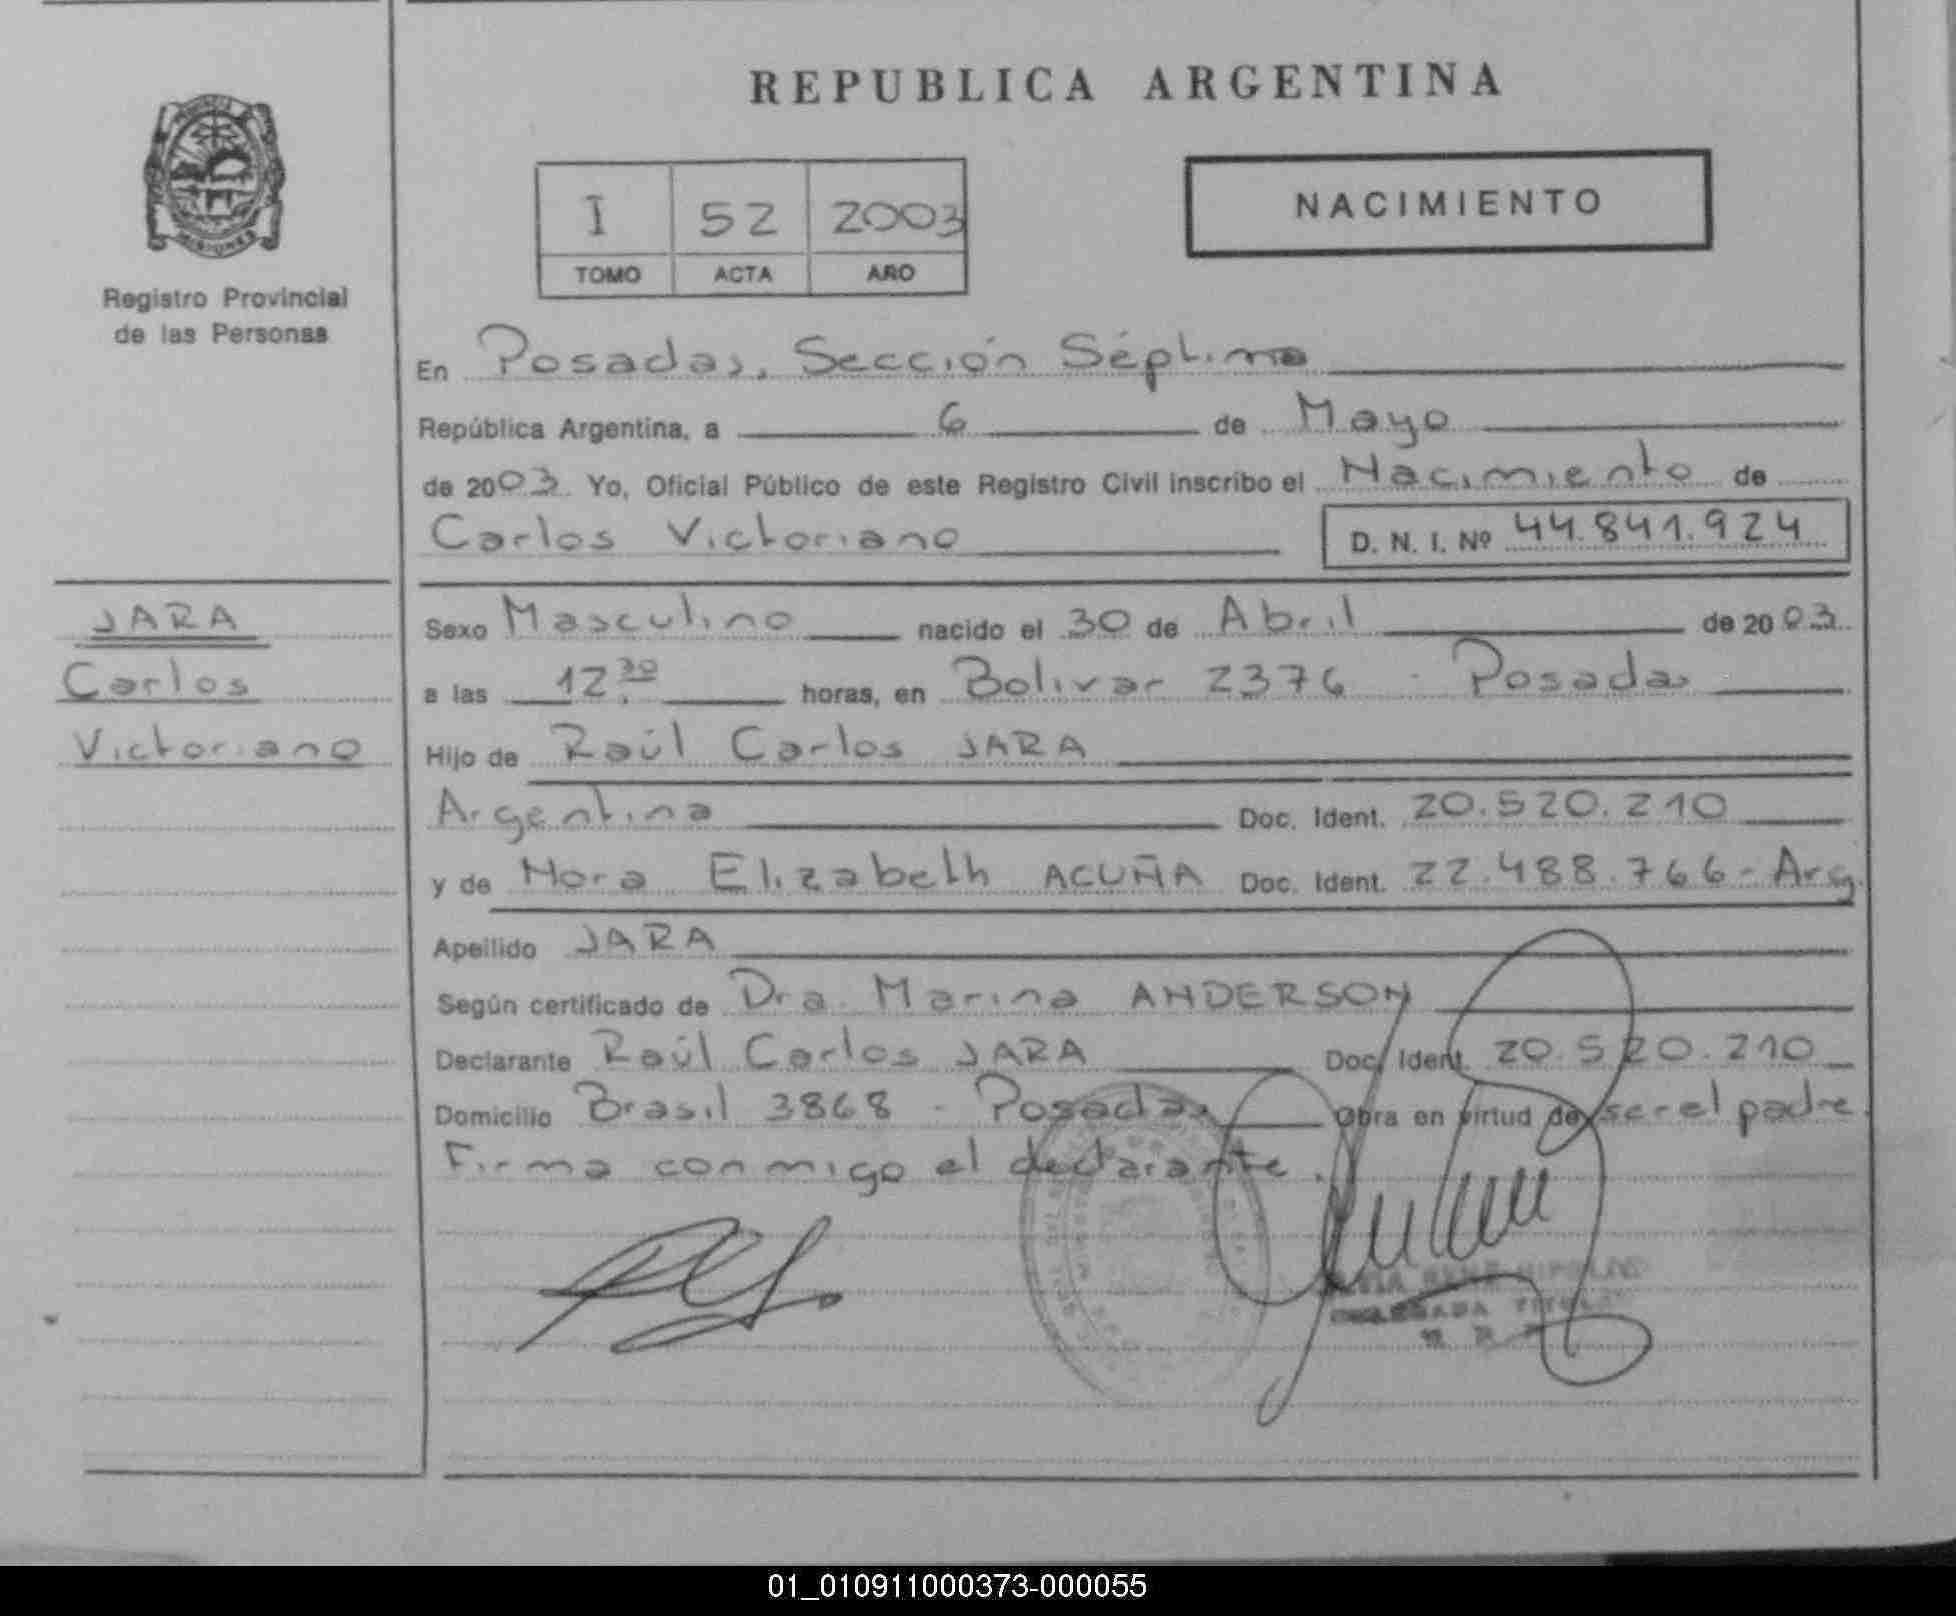 REPUBLICA ARGENTINA
I 52 2003
TOMO ACTA AÑO
NACIMIENTO
MISIONES
Registro Provincial
de las Personas
En Posadas, Sección Séptima
República Argentina, a 6 de Mayo
de 2003. Yo, Oficial Público de este Registro Civil inscribo el Nacimiento de
Carlos Victoriano D. N. I. Nº 44.841.924
JARA
Carlos
Victoriano
Sexo Masculino nacido el 30 de Abril de 2003.
a las 12:30 horas, en Bolivar 2376 - Posadas
Hijo de Raúl Carlos JARA
Argentina Doc. Ident. 20.520.210
y de Nora Elizabeth ACUÑA Doc. Ident. 22.488.766 - Arg.
Apellido JARA
Según certificado de Dra. Marina ANDERSON
Declarante Raúl Carlos JARA Doc. Ident. 20.520.210
Domicilio Brasil 3868 - Posadas Obra en virtud de ser el padre.
Firma conmigo el declarante.
TITULAR
01_010911000373-000055